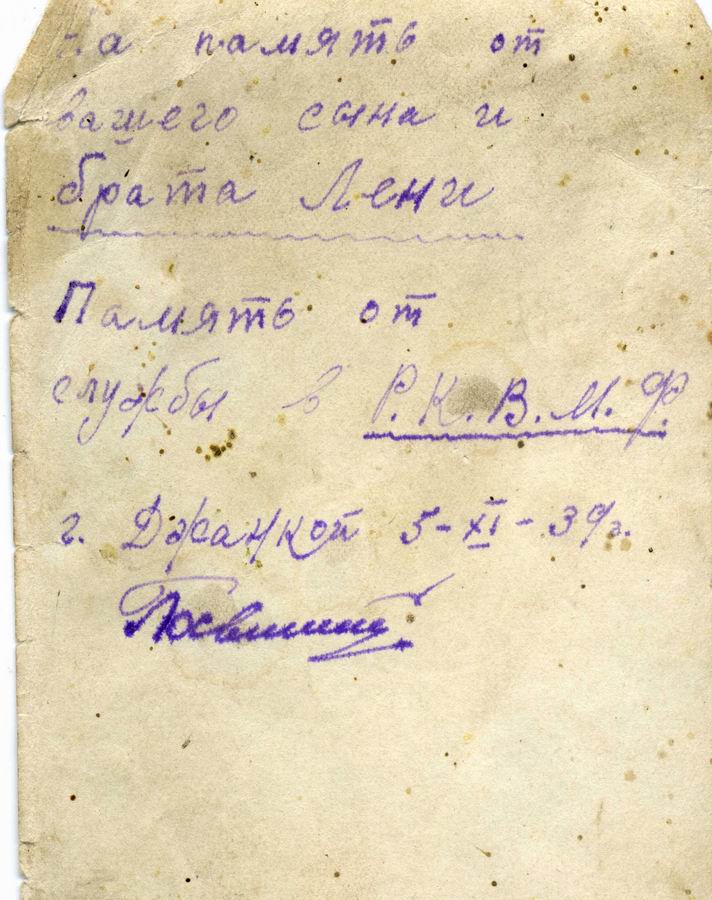 на память от
вашего сына и
брата Лени
Память от
службы в Р.К.В.М.Ф
г. Джанкой 5-XI-39г.